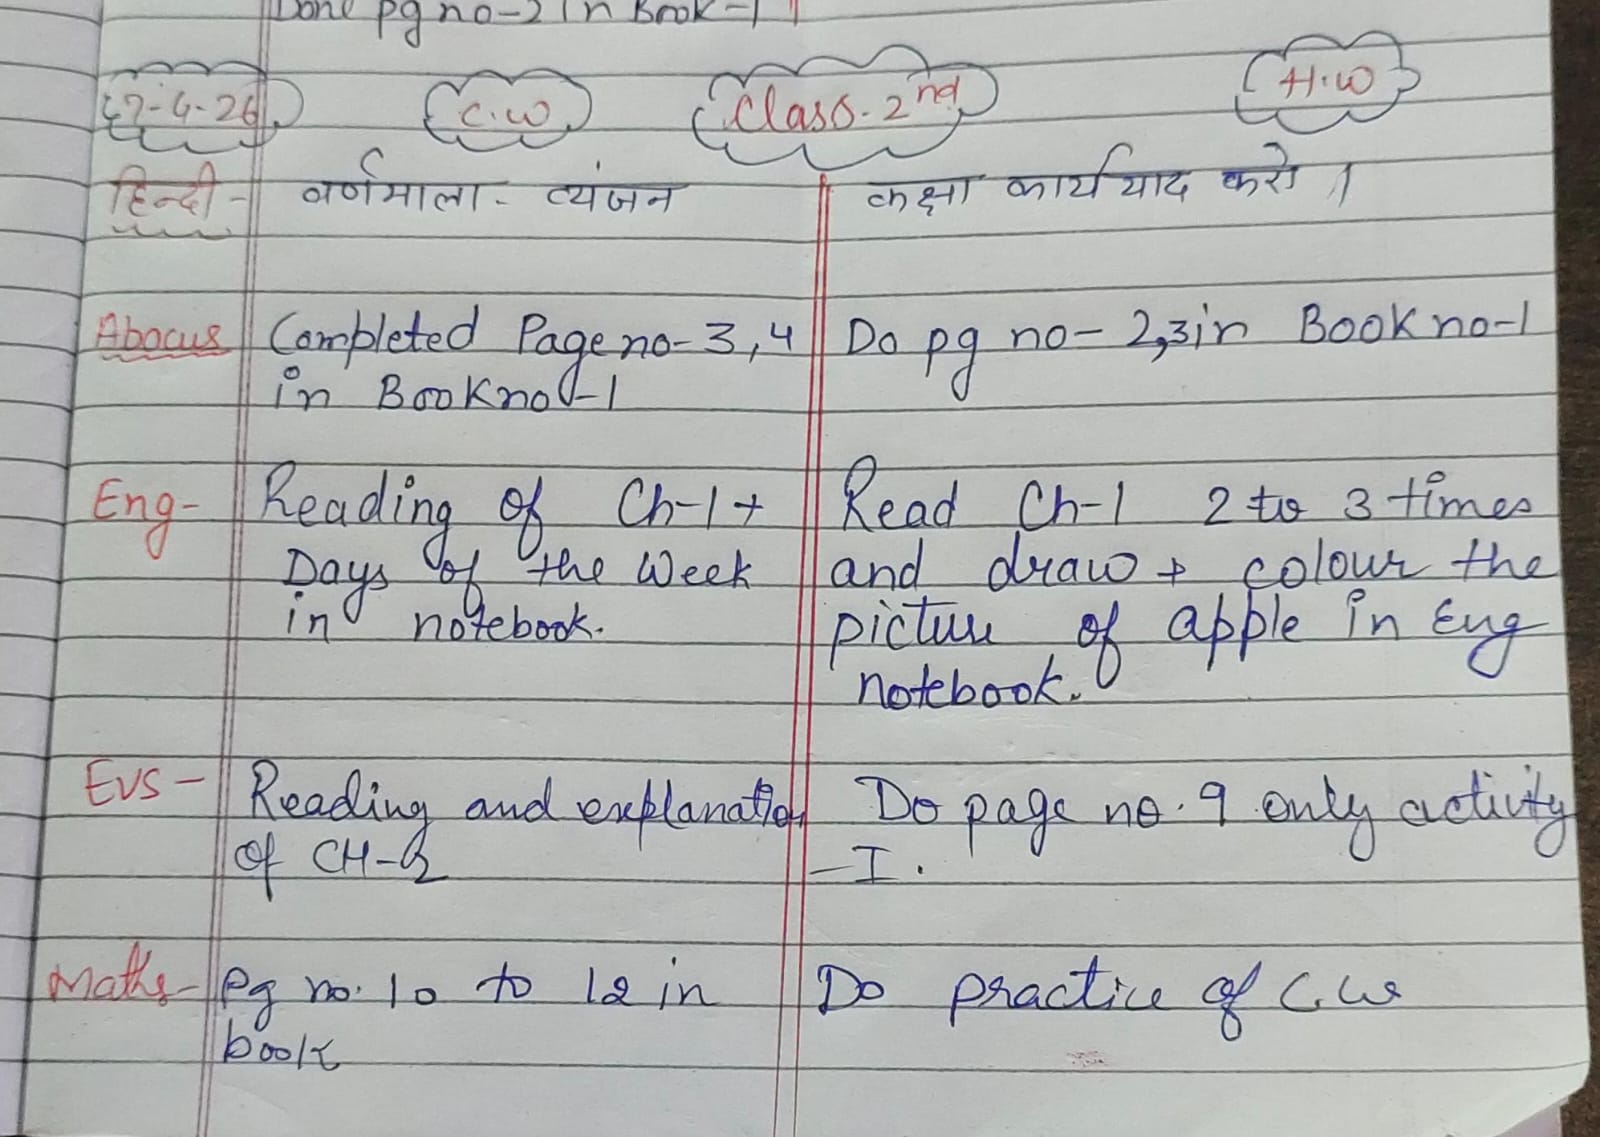 Done pg no-2 in Book-1
7-4-26 C.W Class-2nd H.W
हिन्दी- वर्णमाला - व्यंजन कक्षा कार्य याद करो ।
Abacus Completed Page no-3,4 Do pg no-2,3 in Book no-1
in Book no-1
Eng- Reading of Ch-1+ Read Ch-1 2 to 3 times
Days of the Week and draw + colour the
in notebook. picture of apple in Eng
notebook.
EVS- Reading and explanation Do page no. 9 only activity
of CH-2 -I.
Maths- Pg no. 10 to 12 in Do practice of C.w
book